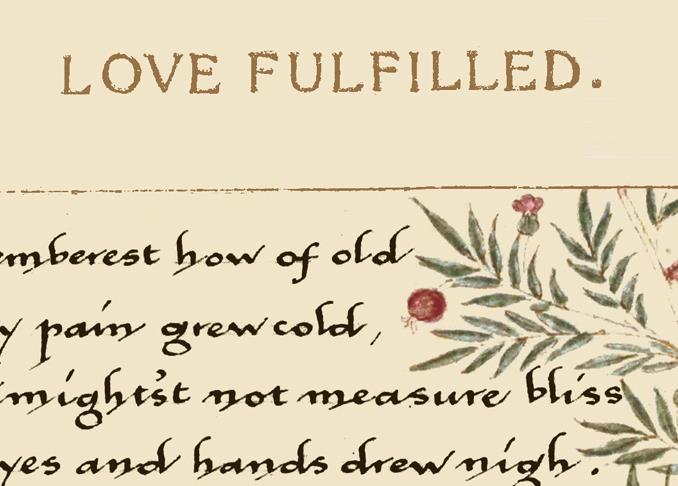 LOVE FULFILLED.
emberest how of old
y pain grew cold,
mights't not measure bliss
yes and hands drew nigh.